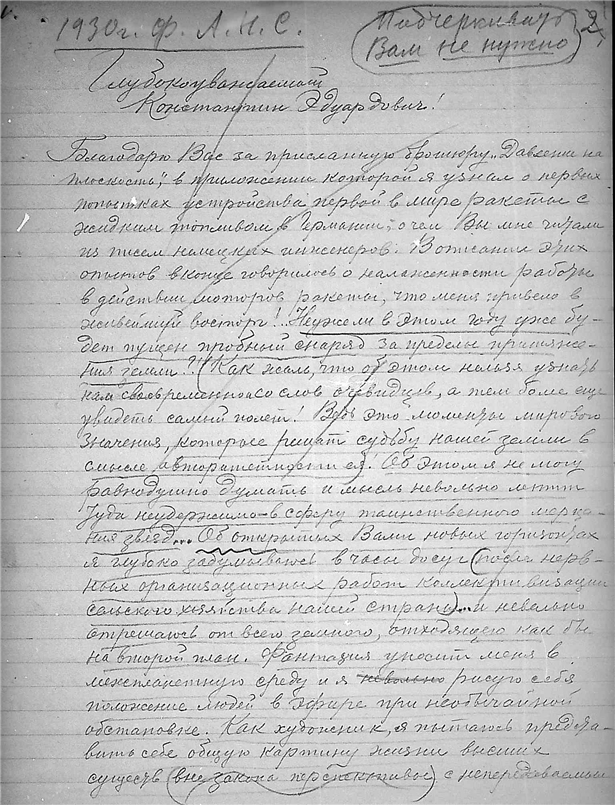 1930 г. Ф. Л. Н. С.
Подчеркивать
Вам не нужно
2
Глубокоуважаемый
Константин Эдуардович!
Благодарю Вас за присланную брошюру „Давление на
плоскость", в приложении которой я узнал о первых
попытках устройства первой в мире ракеты с
жидким топливом в Германии, о чем Вы мне читали
из писем немецких инженеров. В описании этих
опытов в конце говорилось о налаженности работы
в действии моторов ракеты, что меня привело в
живейший восторг!.. Неужели в этом году уже бу-
дет пущен пробный снаряд за пределы притяже-
ния земли?! (Как жаль, что об этом нельзя узнать
нам своевременно со слов очевидцев, а тем более еще
увидеть самый полет! Ведь это моменты мирового
значения, которые решат судьбу нашей земли в
смысле авторитетности ея). Об этом я не могу
равнодушно думать и мысль невольно летит
туда неудержимо – в сферу таинственного мерца-
ния звезд... Об открытых Вами новых горизонтах
я глубоко задумываюсь в часы досуг (после нерв-
ных организационных работ коллективизации
сельского хозяйства нашей страны)... и невольно
отрешаюсь от всего земного, отходящего как бы
на второй план. Фантазия уносит меня в
межпланетную среду и я невольно рисую себе
положение людей в эфире при необычайной
обстановке. Как художник, я пытаюсь предста-
вить себе общую картину жизни высших
существ (вне закона перспективы) с непередаваемым